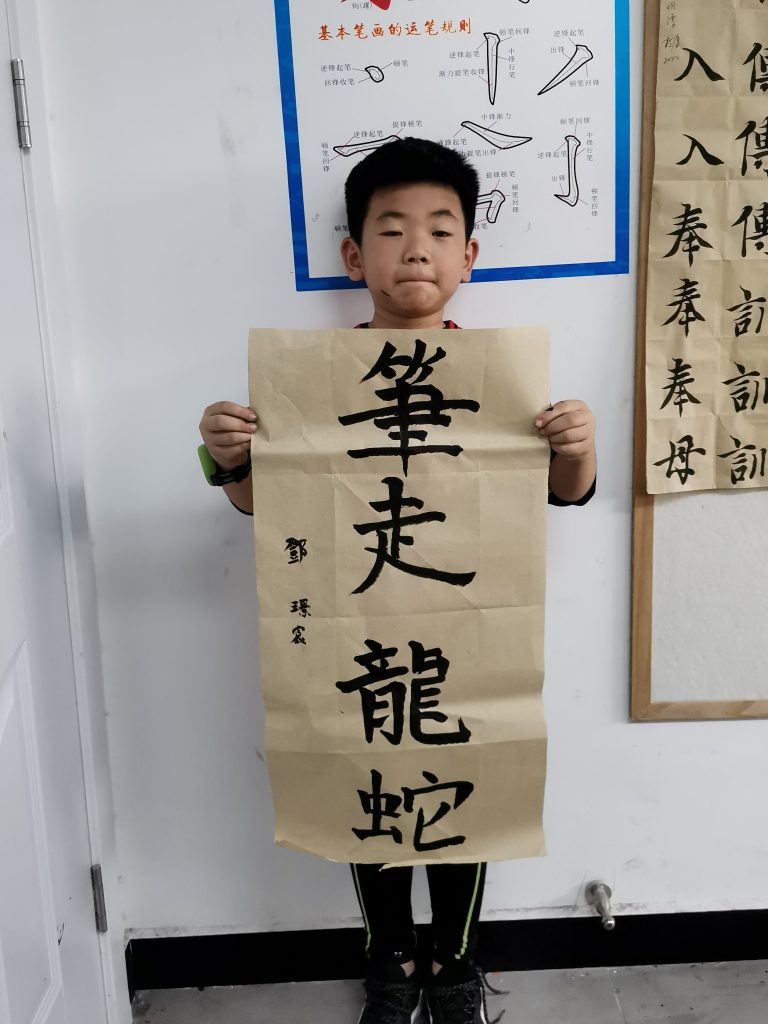 钩(趯)
基本笔画的运笔规则
逆锋起笔
顿笔
回锋收笔
顿笔回锋
逆锋起笔
中锋行笔
渐力提笔收锋
逆锋起笔
出锋
顿笔回锋
提锋顿笔
逆锋起笔
顿笔回锋
中锋渐力
提笔出锋
顿笔回锋
中锋行笔
逆锋起笔
出锋
顿笔回锋
提锋顿笔
顿笔回锋
筆走龍蛇
鄧璟宸
傳傳傳訓訓訓
入入奉奉奉母